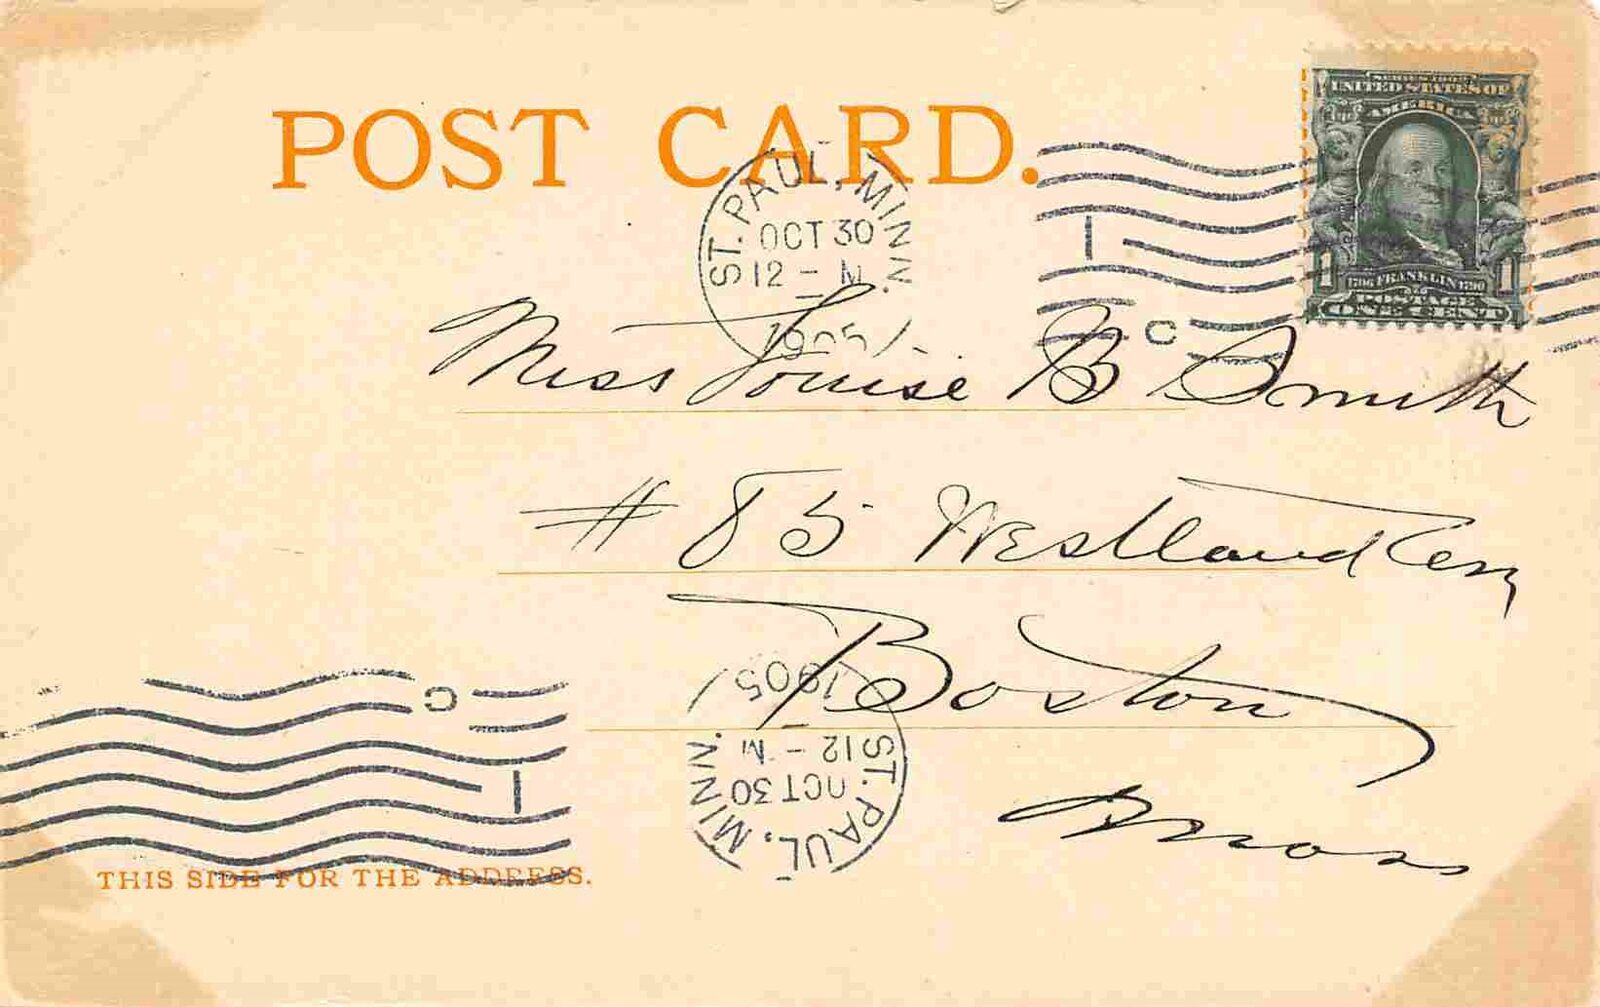 POST CARD.
SERIES 1902
UNITED STATES OF
AMERICA
1706 FRANKLIN 1790
POSTAGE
1 1
ONE CENT
ST. PAUL, MINN.
OCT 30
12 - M
1905
1
C
Miss Louise B Smith
# 85 Westland Ave
Boston
Mass
C
1
1905
12 - M
OCT 30
ST. PAUL, MINN.
THIS SIDE FOR THE ADDRESS.